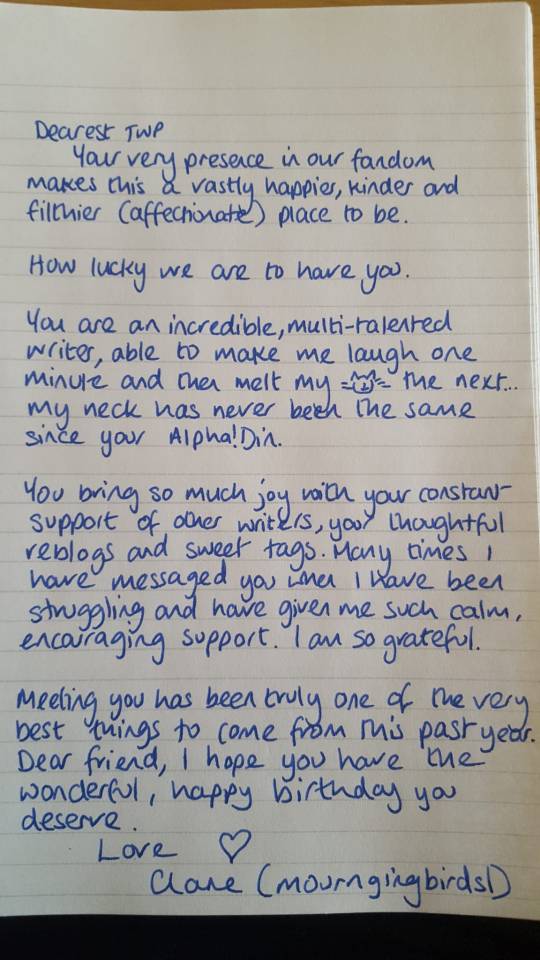 Dearest TWP
Your very presence in our fandom
makes this a vastly happier, kinder and
filthier (affectionate) place to be.
How lucky we are to have you.
You are an incredible, multi-talented
writer, able to make me laugh one
minute and then melt my the next...
my neck has never been the same
since your Alpha!Din.
You bring so much joy with your constant
support of other writers, your thoughtful
reblogs and sweet tags. Many times I
have messaged you when I have been
struggling and have given me such calm,
encouraging support. I am so grateful.
Meeting you has been truly one of the very
best things to come from this past year.
Dear friend, I hope you have the
wonderful, happy birthday you
deserve.
Love ♡
Clare (mourngingbirds1)